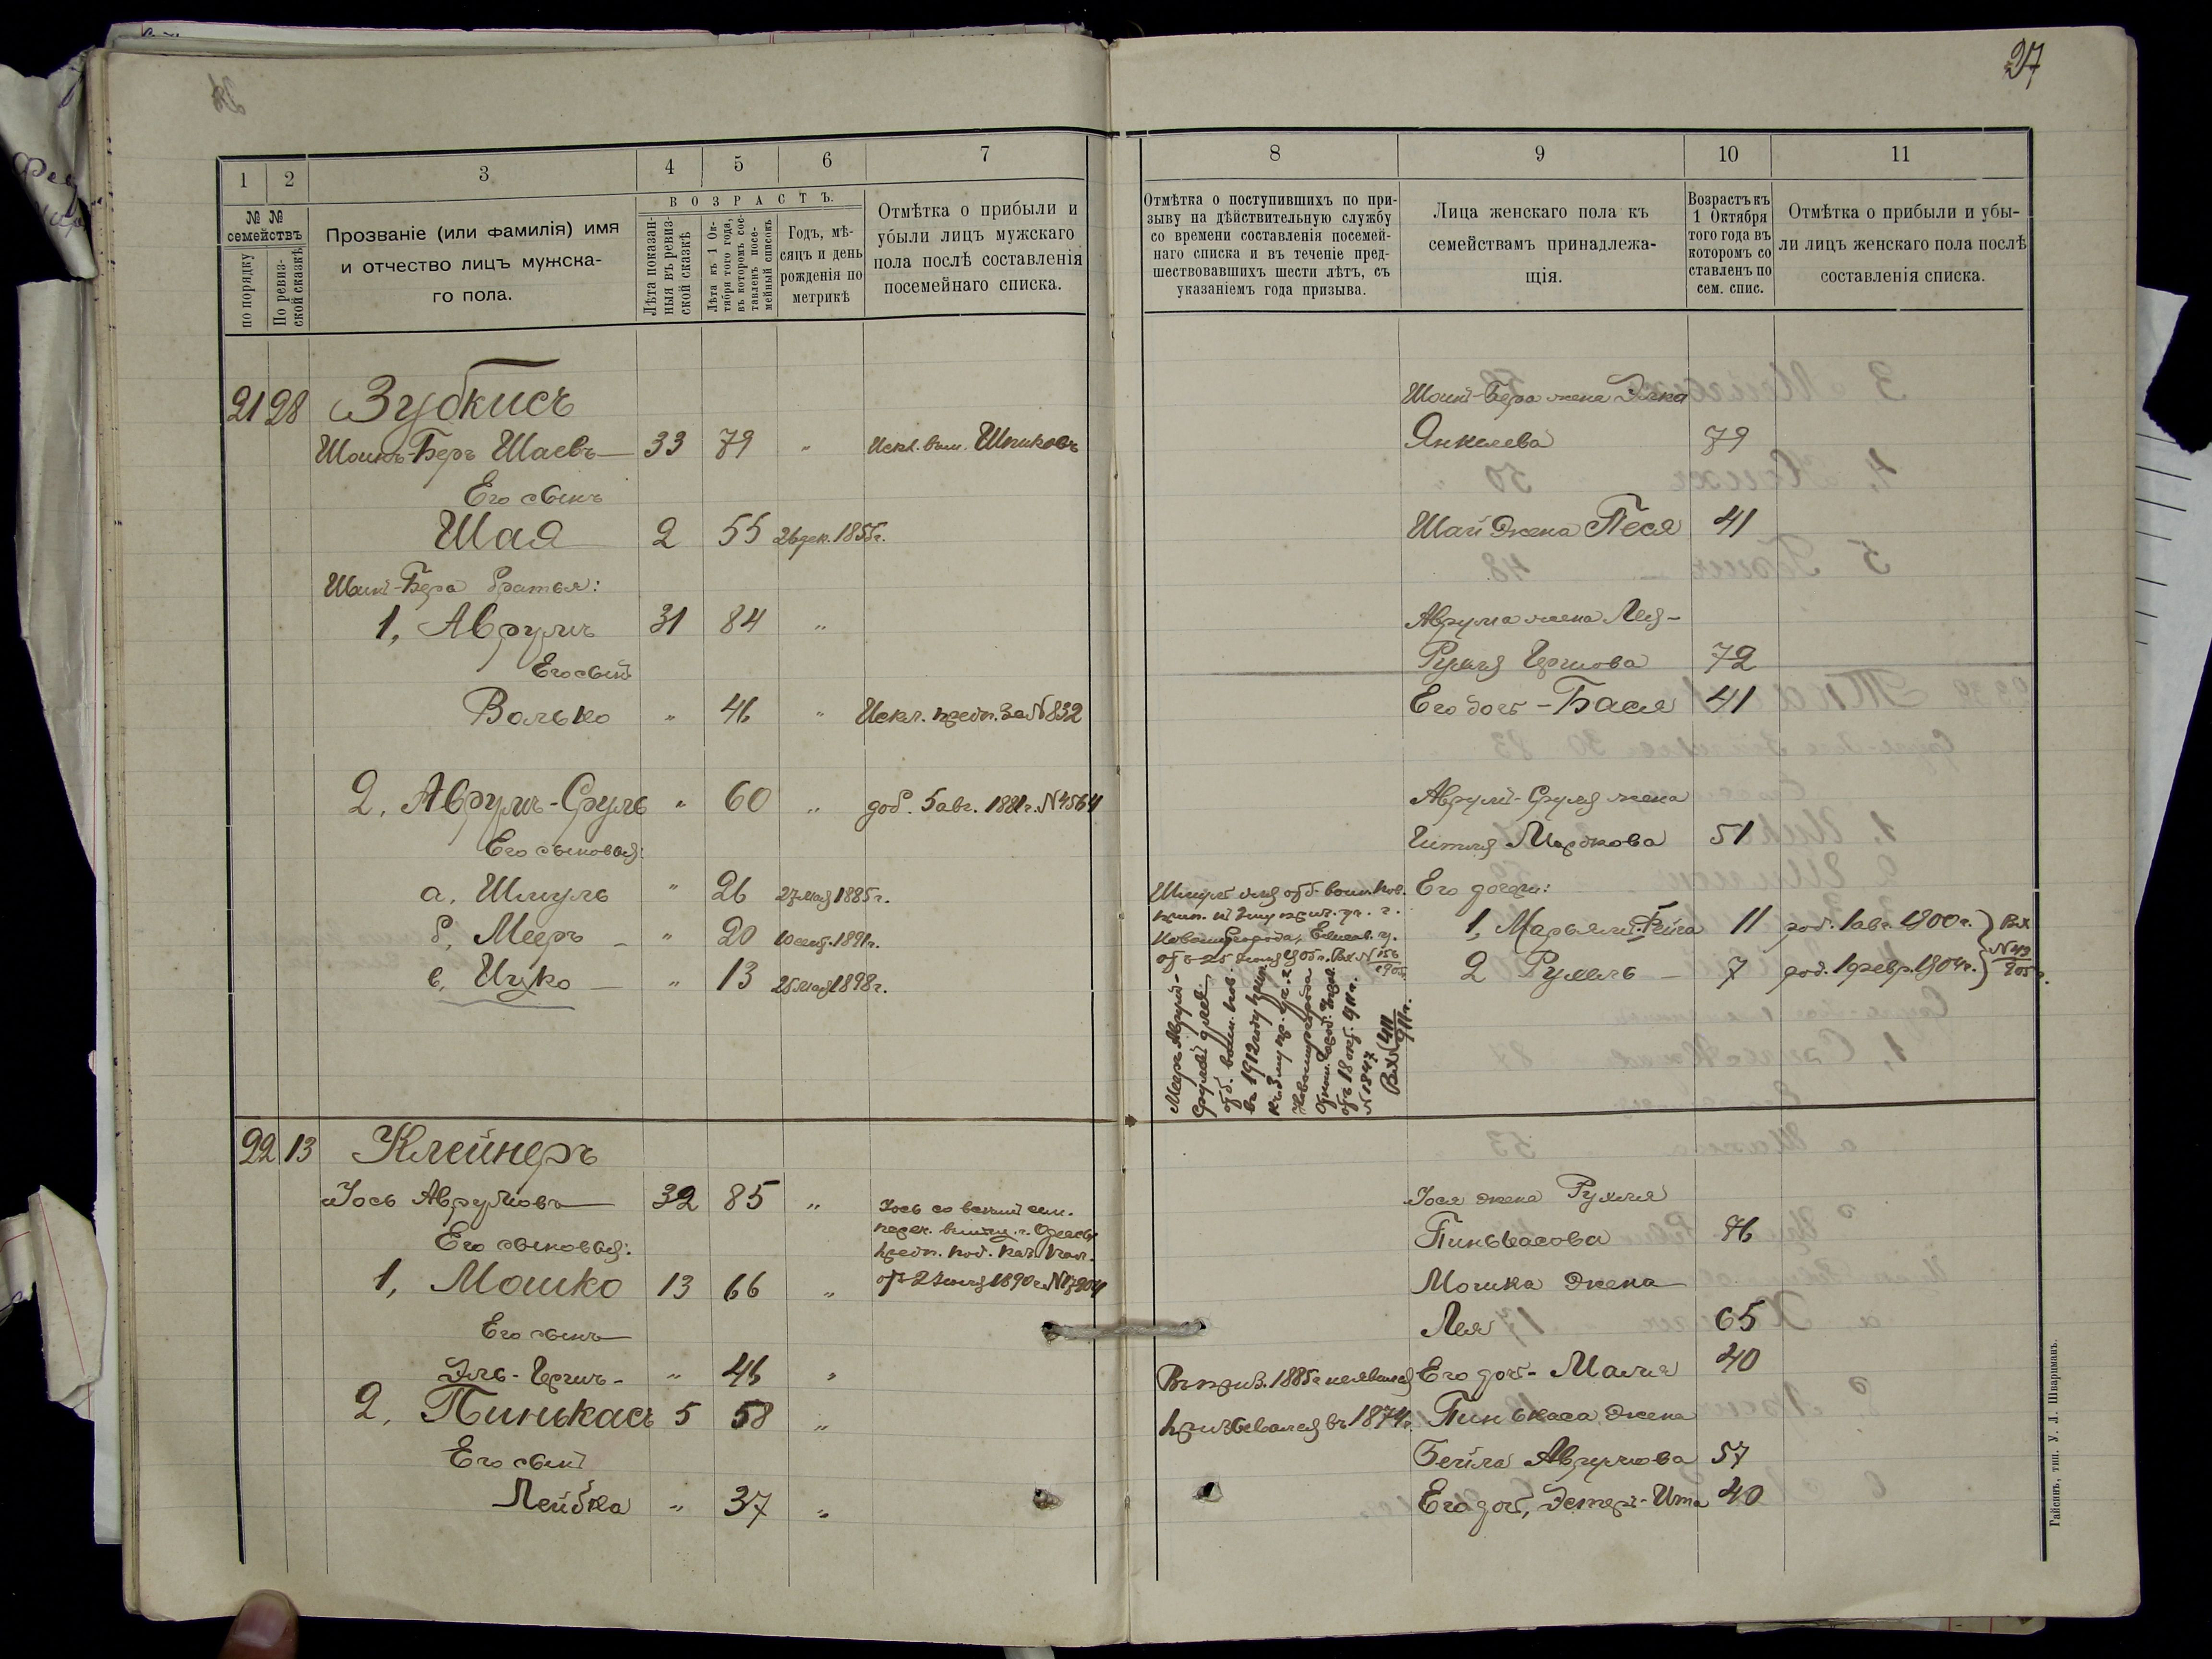 27
1
2
3
4
5
6
7
№ № семействъ
по порядку
По ревиз-
ской сказкѣ
Прозваніе (или фамилія) имя
и отчество лицъ мужска-
го пола.
ВОЗРАСТЪ.
Лѣта показан-
ныя въ ревиз-
ской сказкѣ
Лѣта къ 1 Ок-
тября того года,
въ которомъ сос-
тавленъ посе-
мейный списокъ
Годъ, мѣ-
сяцъ и день
рожденія по
метрикѣ
Отмѣтка о прибыли и
убыли лицъ мужскаго
пола послѣ составленія
посемейнаго списка.
21 28 Зубкисъ
Шоикъ-Беръ Шаевъ 33 79 " Искл. Шпиковъ
Его сынъ
Шая 2 55 26 дек. 1855г.
Шоик-Бера братья:
1, Аврумъ 31 84 "
Его сынъ
Волько " 46 " Искл. предп. за №832
2, Аврумъ-Сруль " 60 " доб. 5 авг. 1881г. №4564
Его сыновья:
а, Шмуль " 26 27 мая 1885г.
б, Мееръ " 20 10 сент. 1891г.
в, Ицко " 13 25 мая 1898г.
22 13 Клейнеръ
Іось Аврумовъ 32 85 " Іось со всѣмъ сем.
перех. въ мѣщ. г. Одессы
предп. под. каз. пал.
Его сыновья:
1, Мошко 13 66 " отъ 2 Іюля 1890г. №17204
Его сынъ
Эль-Гершъ " 46 "
2, Пинькасъ 5 58 "
Его сынъ
Лейбка " 37 "
8
9
10
11
Отмѣтка о поступившихъ по при-
зыву на дѣйствительную службу
со времени составленія посемей-
наго списка и въ теченіе пред-
шествовавшихъ шести лѣтъ, съ
указаніемъ года призыва.
Лица женскаго пола къ
семействамъ принадлежа-
щія.
Возрастъ къ
1 Октября
того года въ
которомъ со
ставленъ по
сем. спис.
Отмѣтка о прибыли и убы-
ли лицъ женскаго пола послѣ
составленія списка.
Шоик-Бера жена Элка
Янкелева 79
Шаи жена Песя 41
Аврума жена Лея-
Рухля Гершова 72
Его дочь - Бася 41
Аврум-Сруля жена
Гитля Маркова 51
Шмуль для отб. воин. пов.
прип. къ 3му приз. уч. г.
Новомиргорода, Елисав. у.
отъ 25 Іюня 905г. Вх. №156/905
Его дочери:
1, Марьям-Фейга 11 род. 1 авг. 1900г.
2 Рухель 7 род. 1 февр. 1904г.
Вх №49/905
Мееръ Аврум-
Срулевъ для
отб. воин. пов.
въ 1912 году прип.
къ 3му пр. уч. г.
Новомиргорода
отъ 18 окт. 911г.
№1847
Вх 411/911г.
Іося жена Рухля
Пинькасова 76
Мошка жена
Лея 65
Въ приз. 1885г. не явился Его доч. - Малья 40
призывался въ 1874г. Пинькаса жена
Бейла Аврумова 57
Его доч, Эстер-Ита 40
Гайсинъ, тип. У. Л. Шварцманъ.